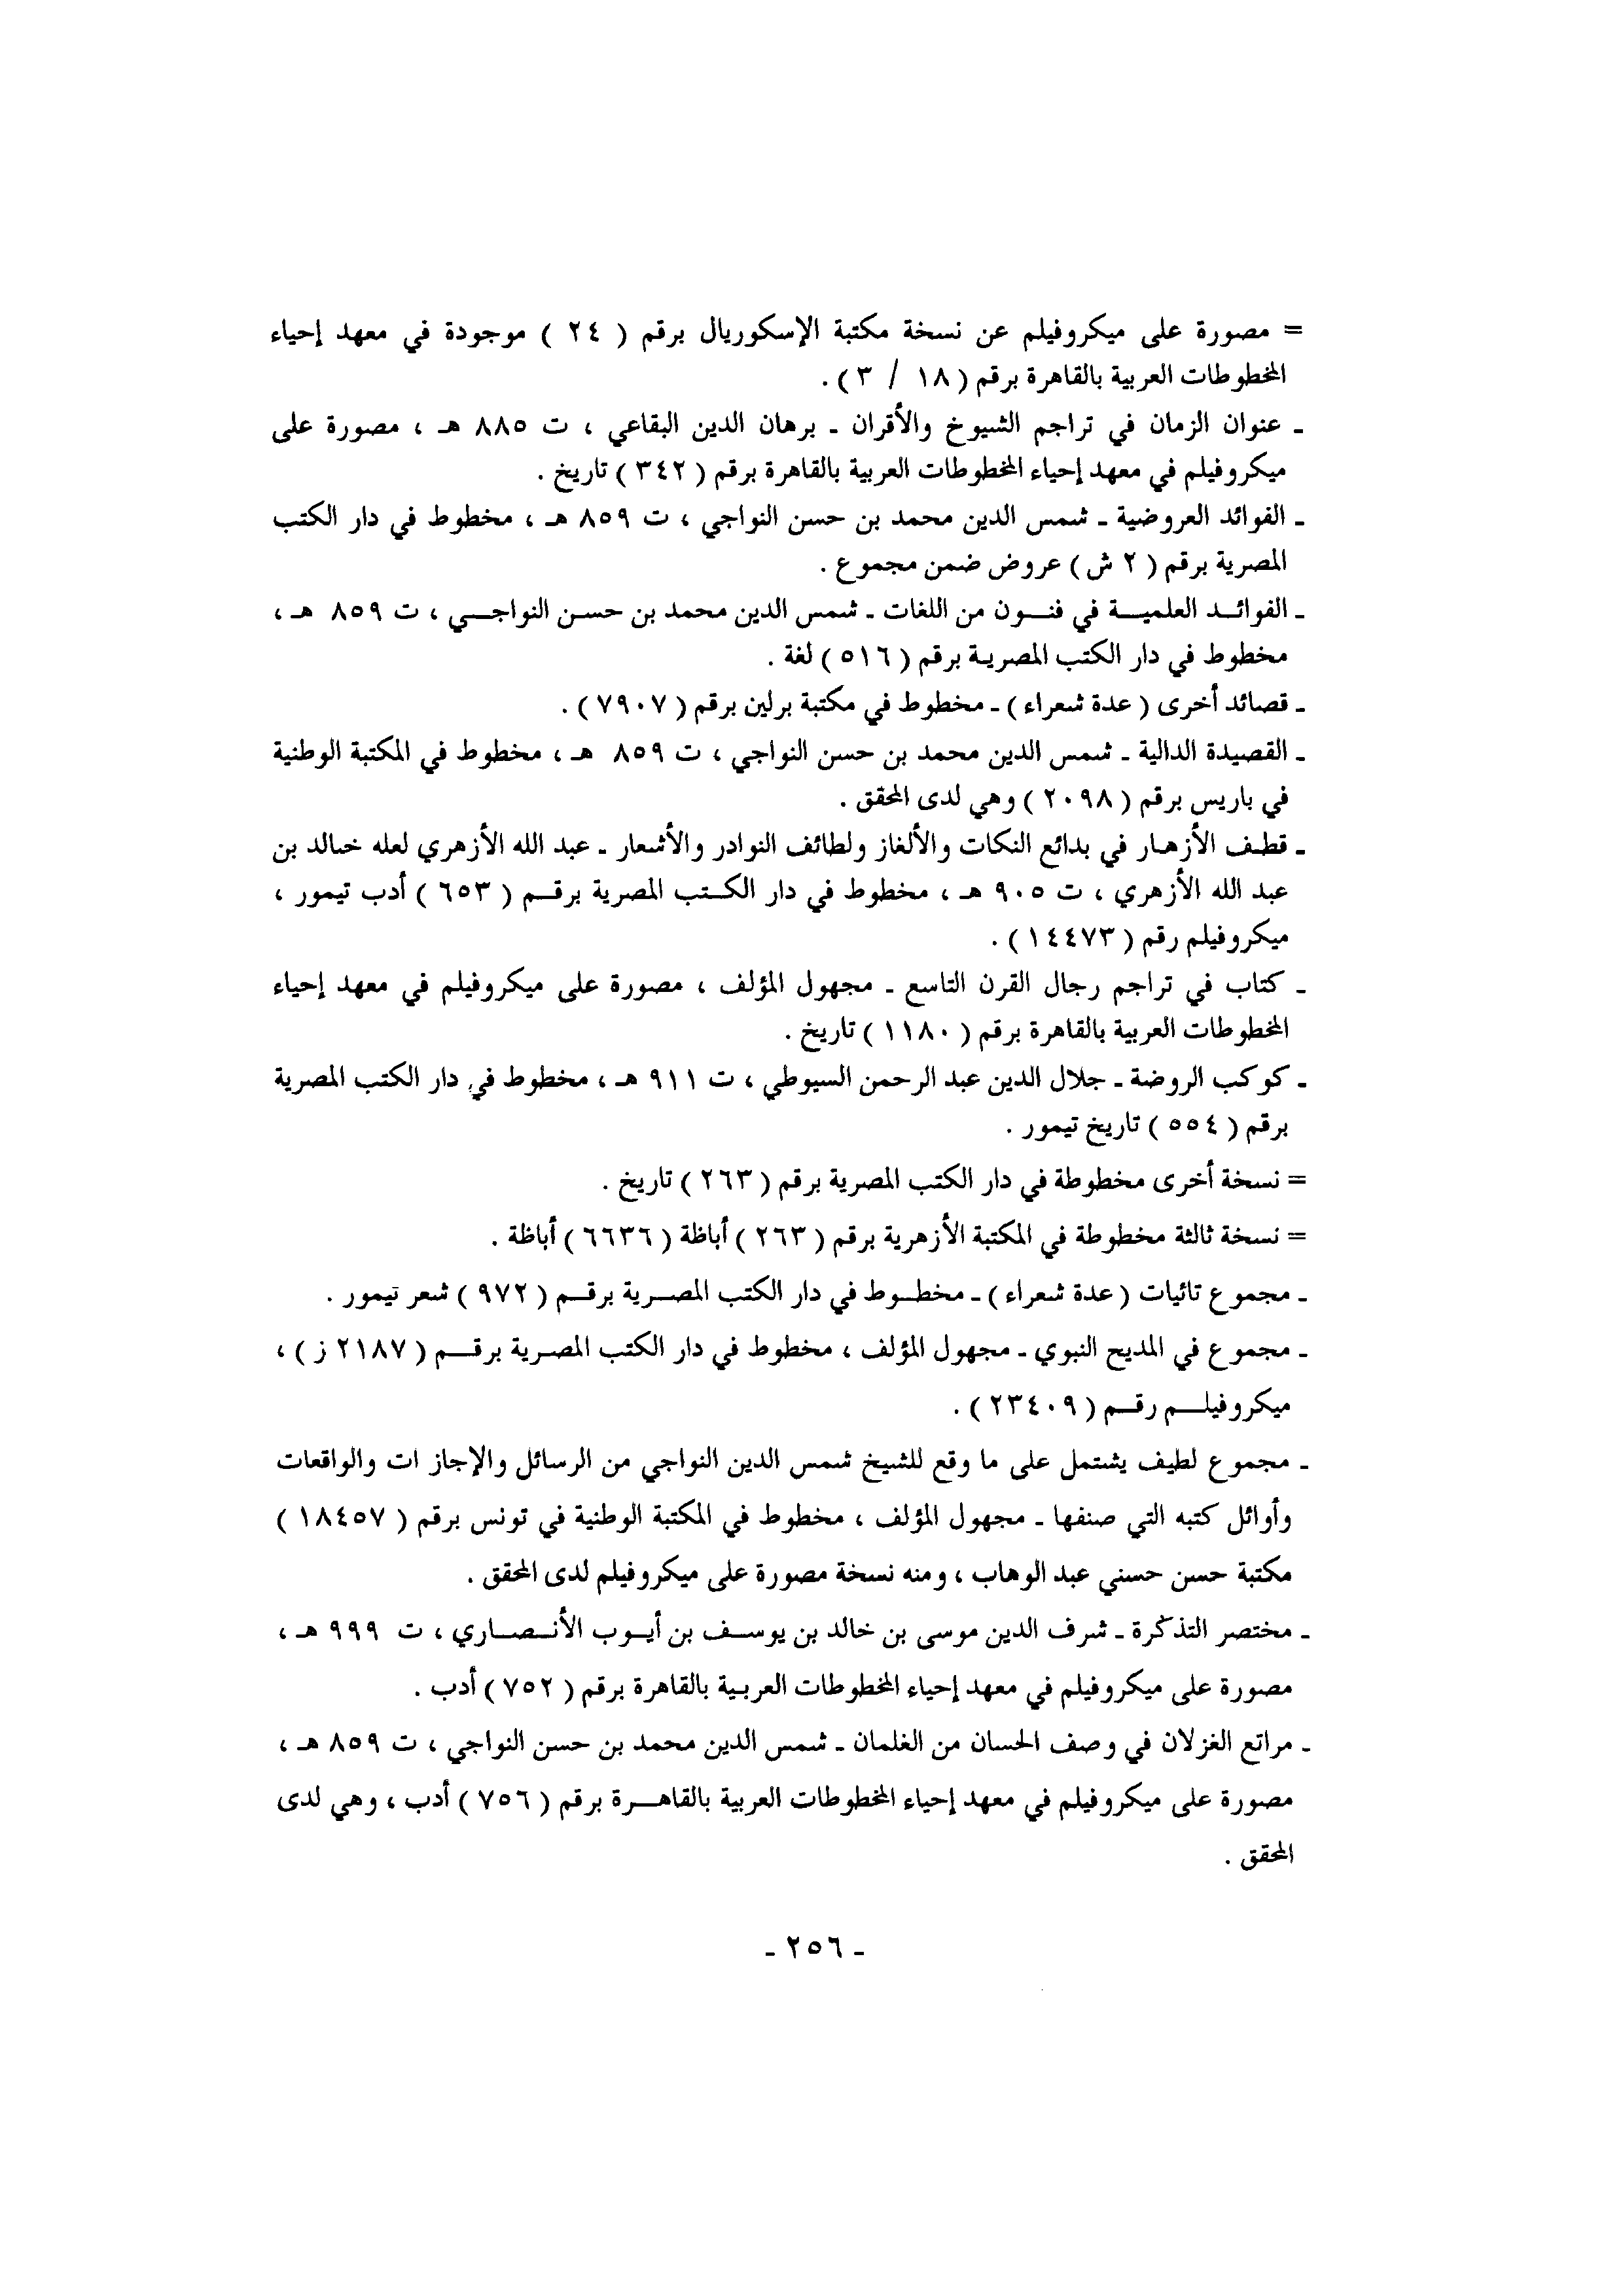 = مصورة على ميكروفيلم عن نسخة مكتبة الإسكوريال برقم ( ٢٤ ) موجودة في معهد إحياء
المخطوطات العربية بالقاهرة برقم ( ١٨ / ٣ ) .
ـ عنوان الزمان في تراجم الشيوخ والأقران ـ برهان الدين البقاعي ، ت ٨٨٥ هـ ، مصورة على
ميكروفيلم في معهد إحياء المخطوطات العربية بالقاهرة برقم ( ٣٤٢ ) تاريخ .
ـ الفوائد العروضية ـ شمس الدين محمد بن حسن النواجي ، ت ٨٥٩ هـ ، مخطوط في دار الكتب
المصرية برقم ( ٢ ش ) عروض ضمن مجموع .
ـ الفوائد العلمية في فنون من اللغات ـ شمس الدين محمد بن حسن النواجي ، ت ٨٥٩ هـ ،
مخطوط في دار الكتب المصرية برقم ( ٥١٦ ) لغة .
ـ قصائد أخرى ( عدة شعراء ) ـ مخطوط في مكتبة برلين برقم ( ٧٩٠٧ ) .
ـ القصيدة الدالية ـ شمس الدين محمد بن حسن النواجي ، ت ٨٥٩ هـ ، مخطوط في المكتبة الوطنية
في باريس برقم ( ٢٠٩٨ ) وهي لدى المحقق .
ـ قطف الأزهار في بدائع النكات والألغاز ولطائف النوادر والأشعار ـ عبد الله الأزهري لعله خالد بن
عبد الله الأزهري ، ت ٩٠٥ هـ ، مخطوط في دار الكتب المصرية برقم ( ٦٥٣ ) أدب تيمور ،
ميكروفيلم رقم ( ١٤٤٧٣ ) .
ـ كتاب في تراجم رجال القرن التاسع ـ مجهول المؤلف ، مصورة على ميكروفيلم في معهد إحياء
المخطوطات العربية بالقاهرة برقم ( ١١٨٠ ) تاريخ .
ـ كوكب الروضة ـ جلال الدين عبد الرحمن السيوطي ، ت ٩١١ هـ ، مخطوط في دار الكتب المصرية
برقم ( ٥٥٤ ) تاريخ تيمور .
= نسخة أخرى مخطوطة في دار الكتب المصرية برقم ( ٢٦٣ ) تاريخ .
= نسخة ثالثة مخطوطة في المكتبة الأزهرية برقم ( ٢٦٣ ) أباظة ( ٦٦٣٦ ) أباظة .
ـ مجموع تائيات ( عدة شعراء ) ـ مخطوط في دار الكتب المصرية برقم ( ٩٧٢ ) شعر تيمور .
ـ مجموع في المديح النبوي ـ مجهول المؤلف ، مخطوط في دار الكتب المصرية برقم ( ٢١٨٧ ز ) ،
ميكروفيلم رقم ( ٢٣٤٠٩ ) .
ـ مجموع لطيف يشتمل على ما وقع للشيخ شمس الدين النواجي من الرسائل والإجاز ات والواقعات
وأوائل كتبه التي صنفها ـ مجهول المؤلف ، مخطوط في المكتبة الوطنية في تونس برقم ( ١٨٤٥٧ )
مكتبة حسن حسني عبد الوهاب ، ومنه نسخة مصورة على ميكروفيلم لدى المحقق .
ـ مختصر التذكرة ـ شرف الدين موسى بن خالد بن يوسف بن أيوب الأنصاري ، ت ٩٩٩ هـ ،
مصورة على ميكروفيلم في معهد إحياء المخطوطات العربية بالقاهرة برقم ( ٧٥٢ ) أدب .
ـ مراتع الغزلان في وصف الحسان من الغلمان ـ شمس الدين محمد بن حسن النواجي ، ت ٨٥٩ هـ ،
مصورة على ميكروفيلم في معهد إحياء المخطوطات العربية بالقاهرة برقم ( ٧٥٦ ) أدب ، وهي لدى
المحقق .
ـ ٢٥٦ ـ